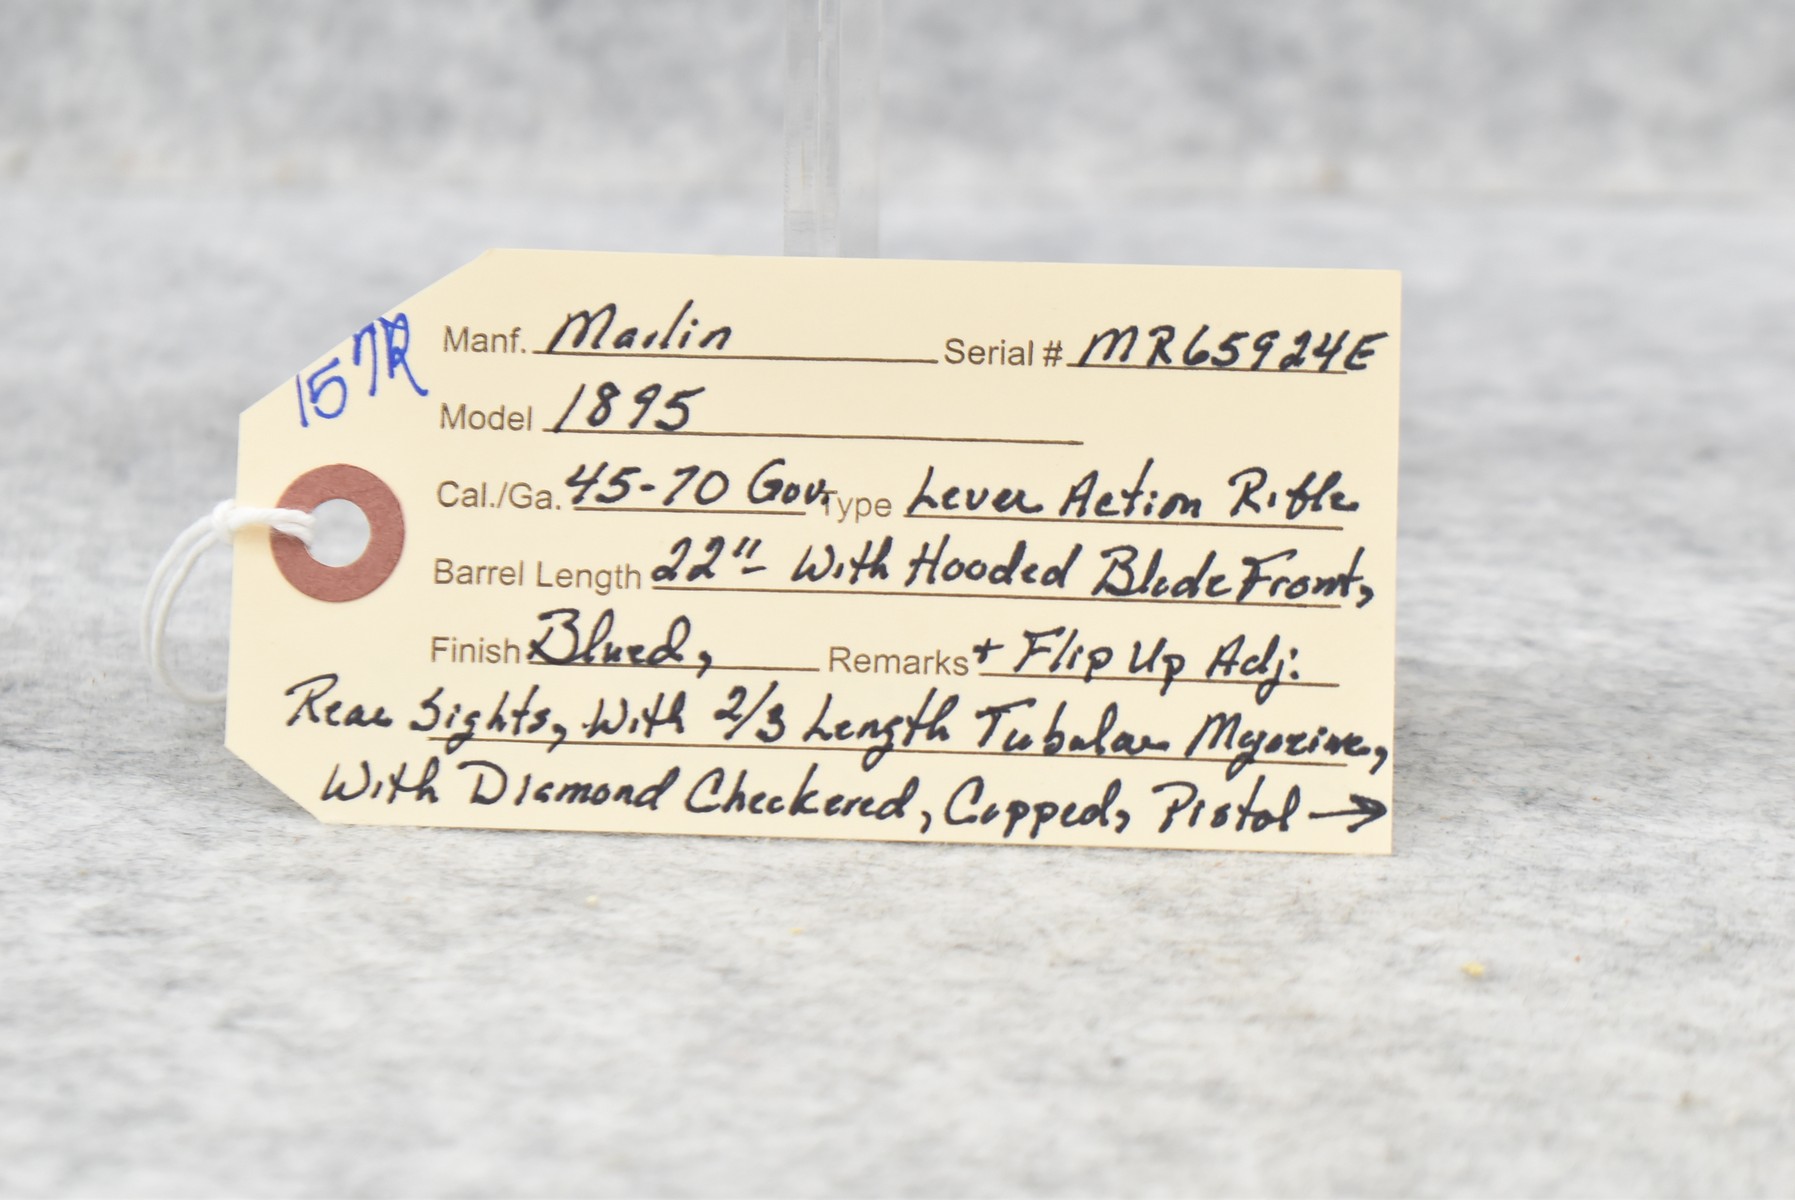 157R
Manf. Marlin Serial # MR65924E
Model 1895
Cal./Ga. 45-70 Gov. Type Lever Action Rifle
Barrel Length 22" With Hooded Blade Front,
Finish Blued, Remarks + Flip Up Adj.
Rear Sights, With 2/3 Length Tubular Magazine,
With Diamond Checkered, Capped, Pistol →